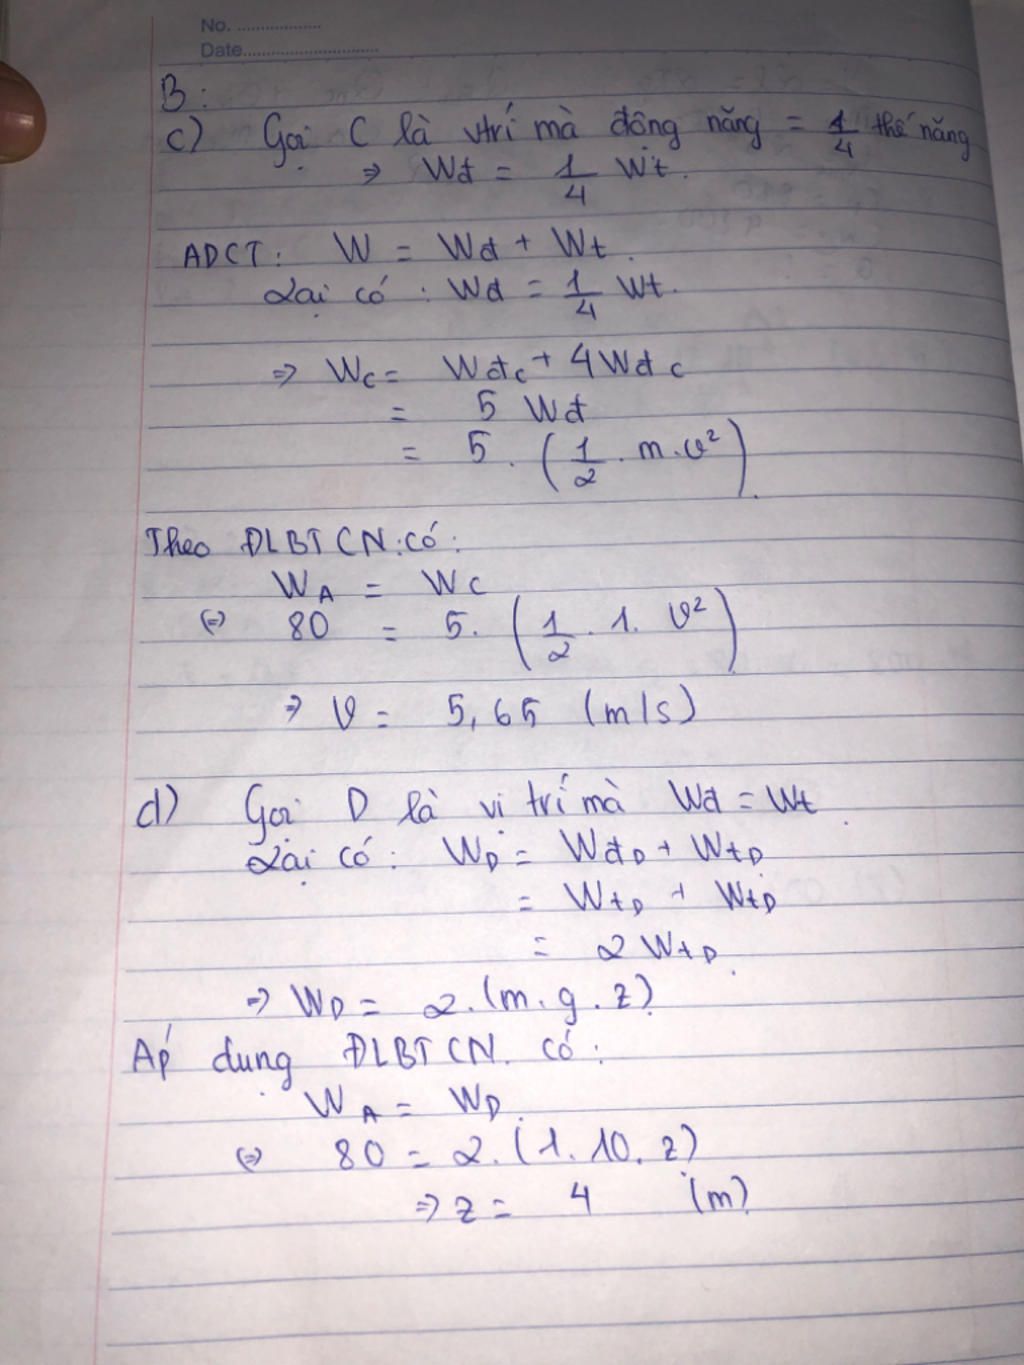 No. ...................
Date..............................
B :
c) Gọi C là vtrí mà động năng = 1/4 thế năng
=> Wđ = 1/4 Wt.
ADCT: W = Wđ + Wt.
Lại có : Wđ = 1/4 Wt.
=> Wc = Wđc + 4Wđc
= 5 Wđ
= 5 . (1/2 . m . v²).
Theo ĐLBTCN: có:
WA = WC
(=) 80 = 5. (1/2 . 1. v²)
=> v = 5,65 (m/s)
d) Gọi D là vị trí mà Wđ = Wt.
Lại có : WD = WđD + WtD
= WtD + WtD
= 2 WtD.
=> WD = 2.(m.g.z)
Áp dụng ĐLBTCN. có:
WA = WD.
(=) 80 = 2.(1.10.z)
=> z = 4 (m)